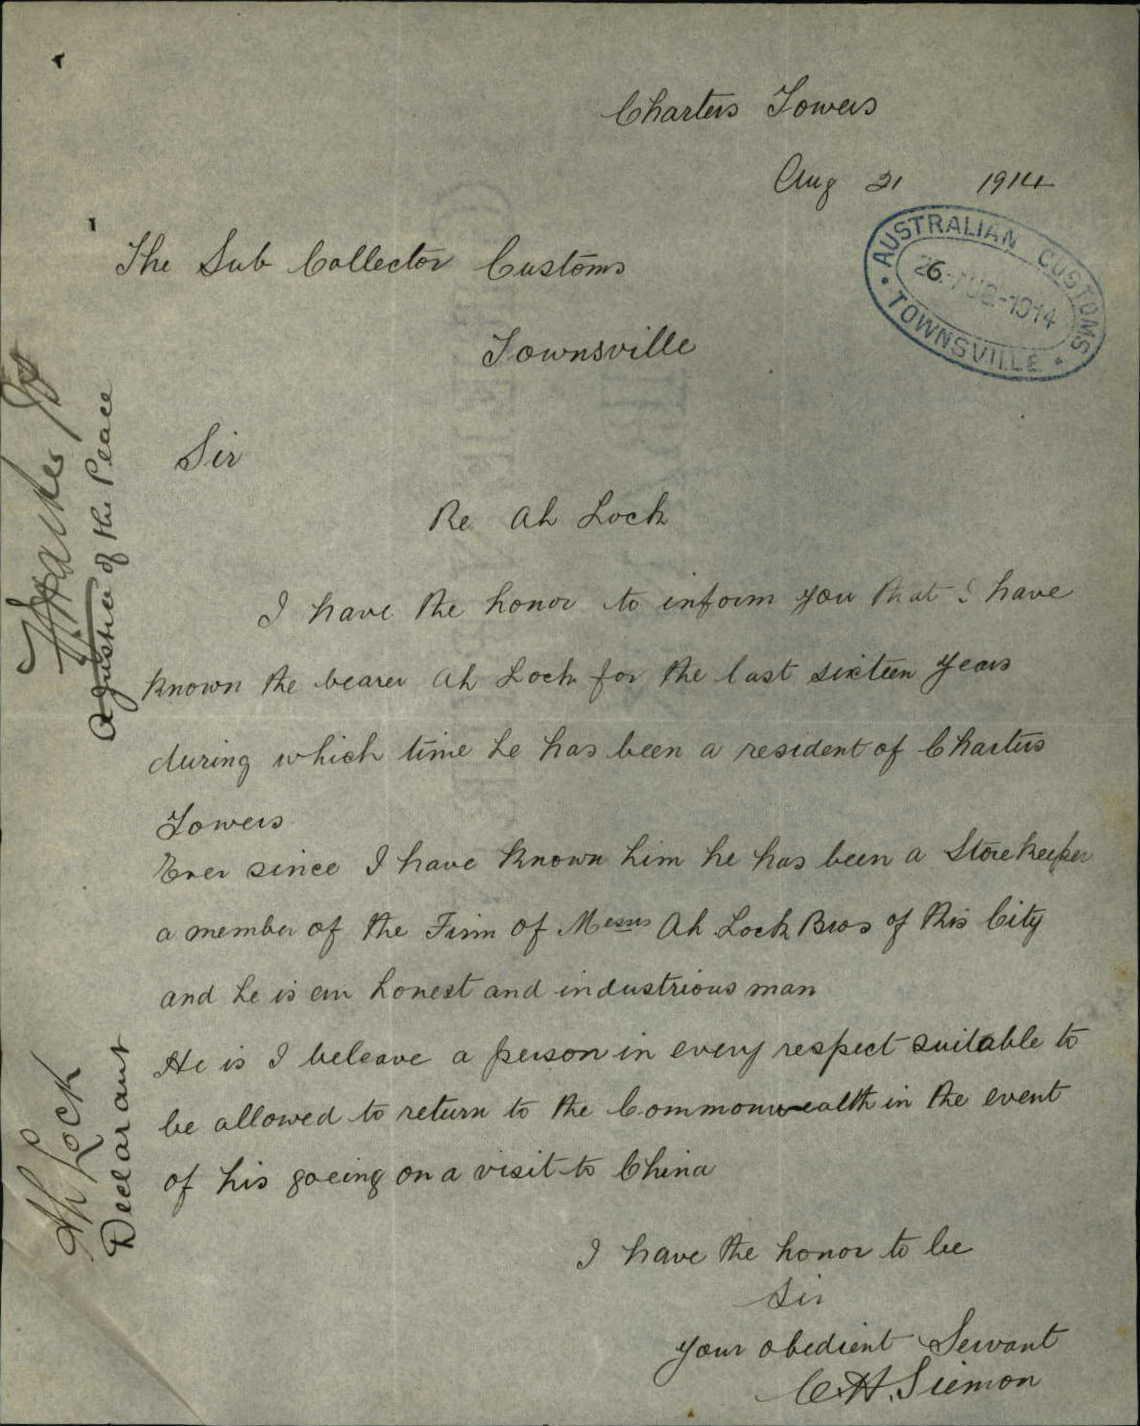 Charters Towers
Aug 21 1914
AUSTRALIAN CUSTOMS
26 AUG 1914
TOWNSVILLE
The Sub Collector Customs
Townsville
Sir
Re Ah Lock
I have the honor to inform you that I have
known the bearer Ah Lock for the last sixteen years
during which time he has been a resident of Charters
Towers
Ever since I have known him he has been a Storekeeper
a member of the Firm of Messrs Ah Lock Bros of this City
and he is an honest and industrious man
He is I beleave a person in every respect suitable to
be allowed to return to the Commonwealth in the event
of his goeing on a visit to China
I have the honor to be
Sir
your obedient Servant
C.H. Siemon
A Justice of the Peace
Ah Lock
Declarant